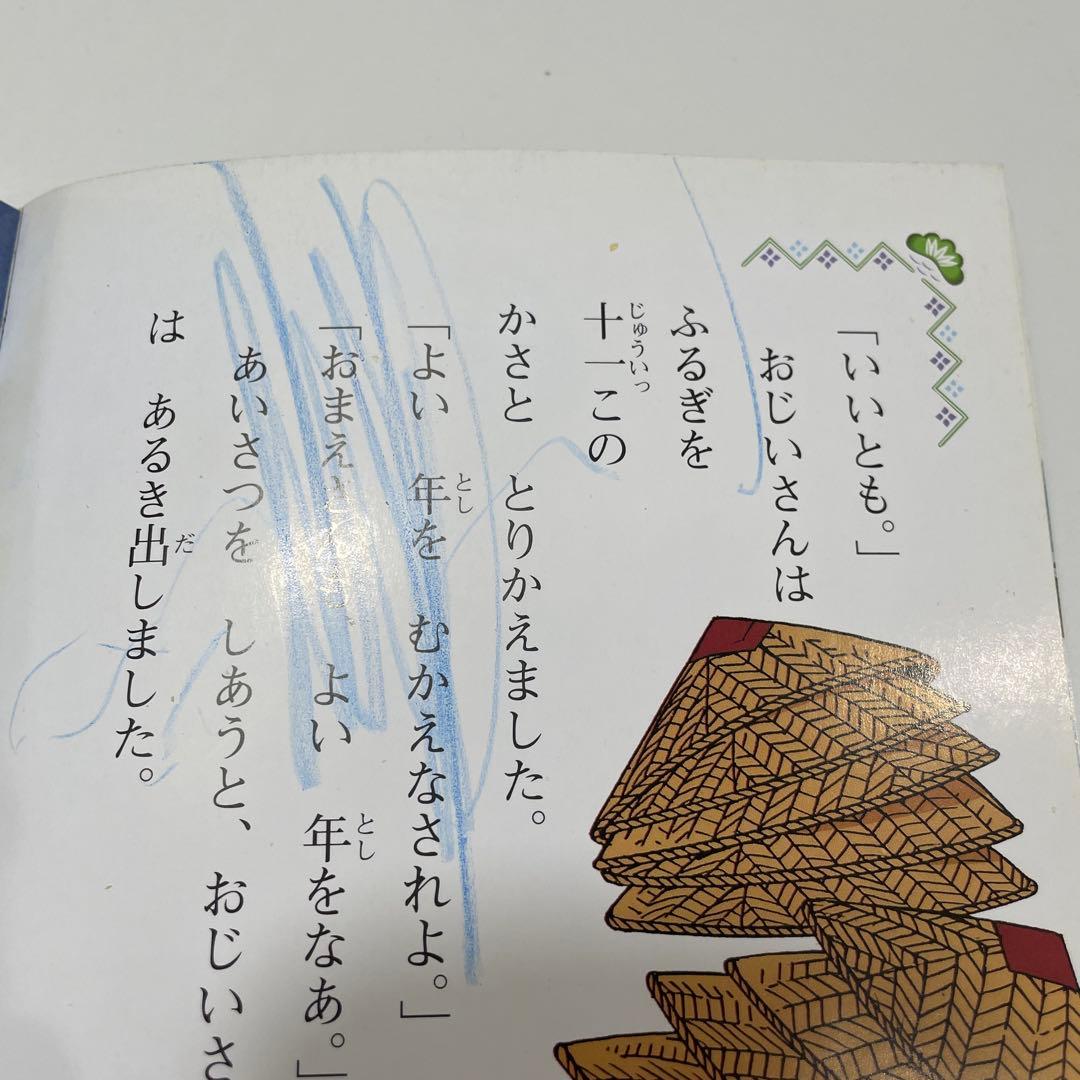 「いいとも。」
おじいさんは
ふるぎを
十一この
じゅういっ
かさと とりかえました。
「よい 年を むかえなされよ。」
とし
「おまえさ 、よい 年をなあ。」
とし
あいさつを しあうと、おじいさ
は あるき出しました。
だ